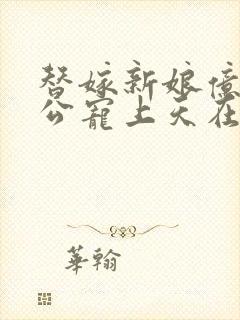 替嫁新娘億
公寵上天在
華翰